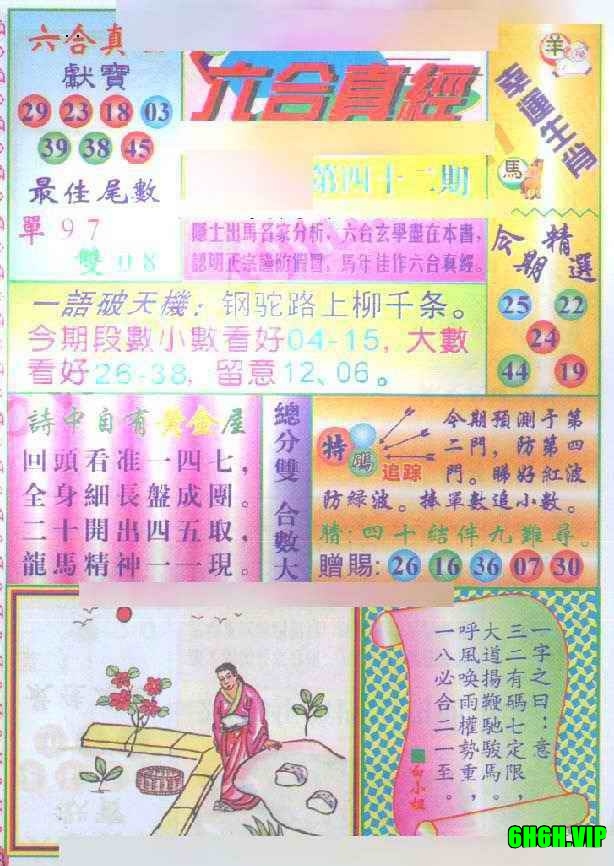 六合真
獻寶
29 23 18 03
39 38 45
最佳尾數
單 9 7
雙 0 8
六合真經
第四十二期
隱士出馬名家分析，六合玄學盡在本書，
認明正宗謹防假冒，馬年佳作六合真經。
羊
幸運生肖
馬
今期精選
25 22
24
44 19
一語破天機：钢驼路上柳千条。
今期段數小數看好04-15，大數
看好26-38，留意12、06。
詩中自有黃金屋
回頭看准一四七，
全身細長盤成團。
二十開出四五取，
龍馬精神一一現。
總分雙 合數大
特碼追踪
今期預測予第
二門，防第四
門。睇好紅波
防綠波。捧單數追小數。
猜：四十结伴九難尋。
贈賜：26 16 36 07 30
一字之曰：意
三二有碼七定限，
大道揚鞭馳駿馬。
呼風喚雨權勢重，
一八必合二一至。
白小姐
6H6H.VIP